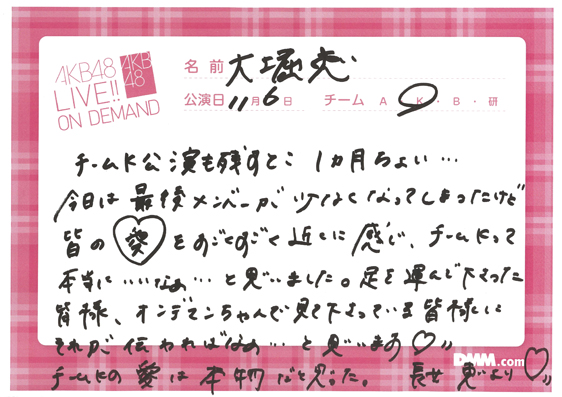 AKB48
LIVE!!
ON DEMAND
AKB
48
名前 大堀恵
公演日 11月6日 チーム A・K・B・研
チームK公演も残すとこ 1ヵ月ちょい…
今日は最後メンバーが少なくなってしまったけど
皆の愛をすごくすごく近くに感じ、チームKって
本当に……いいなぁ…と思いました。足を運んで下さった
皆様、オンデマンちゃんで見て下さっている皆様に
それが伝わればなぁ…と思います♡〃
チームKの愛は本物だと思った。
DMM.com